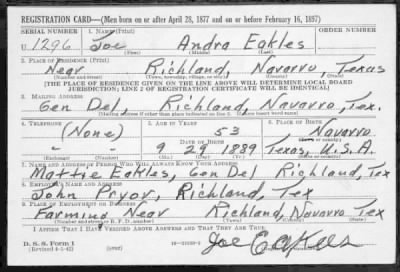 REGISTRATION CARD—(Men born on or after April 28, 1877 and on or before February 16, 1897)
SERIAL NUMBER 1. NAME (Print) ORDER NUMBER
U 1296 Joe Andra Eakles
(First) (Middle) (Last)
2. PLACE OF RESIDENCE (Print)
Near Richland, Navarro Texas
(Number and street) (Town, township, village, or city) (County) (State)
[THE PLACE OF RESIDENCE GIVEN ON THE LINE ABOVE WILL DETERMINE LOCAL BOARD
JURISDICTION; LINE 2 OF REGISTRATION CERTIFICATE WILL BE IDENTICAL]
3. MAILING ADDRESS
Gen Del, Richland, Navarro, Tex.
[Mailing address if other than place indicated on line 2. If same insert word same]
4. TELEPHONE 5. AGE IN YEARS 6. PLACE OF BIRTH
(None) 53 Navarro
DATE OF BIRTH (Town or county)
- - 9 29 1889 Texas, U.S.A.
(Exchange) (Number) (Mo.) (Day) (Yr.) (State or country)
7. NAME AND ADDRESS OF PERSON WHO WILL ALWAYS KNOW YOUR ADDRESS
Mattie Eakles, Gen Del Richland, Tex
8. EMPLOYER'S NAME AND ADDRESS
John Pryor, Richland, Tex
9. PLACE OF EMPLOYMENT OR BUSINESS
Farming Near Richland, Navarro Tex
(Number and street or R. F. D. number) (Town) (County) (State)
I AFFIRM THAT I HAVE VERIFIED ABOVE ANSWERS AND THAT THEY ARE TRUE.
D. S. S. Form 1
(Revised 4-1-42) (over)
Joe Eakles